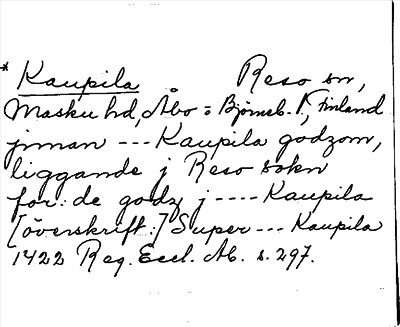 * Kaupila Reso sn,
Masku hd, Åbo = Björneb. l., Finland
jnnan --- Kaupila godzom,
liggande j Reso sokn
for: de godz j ---- Kaupila
[överskrift:] Super --- Kaupila
1422 Reg. Eccl. Ab. s. 297.